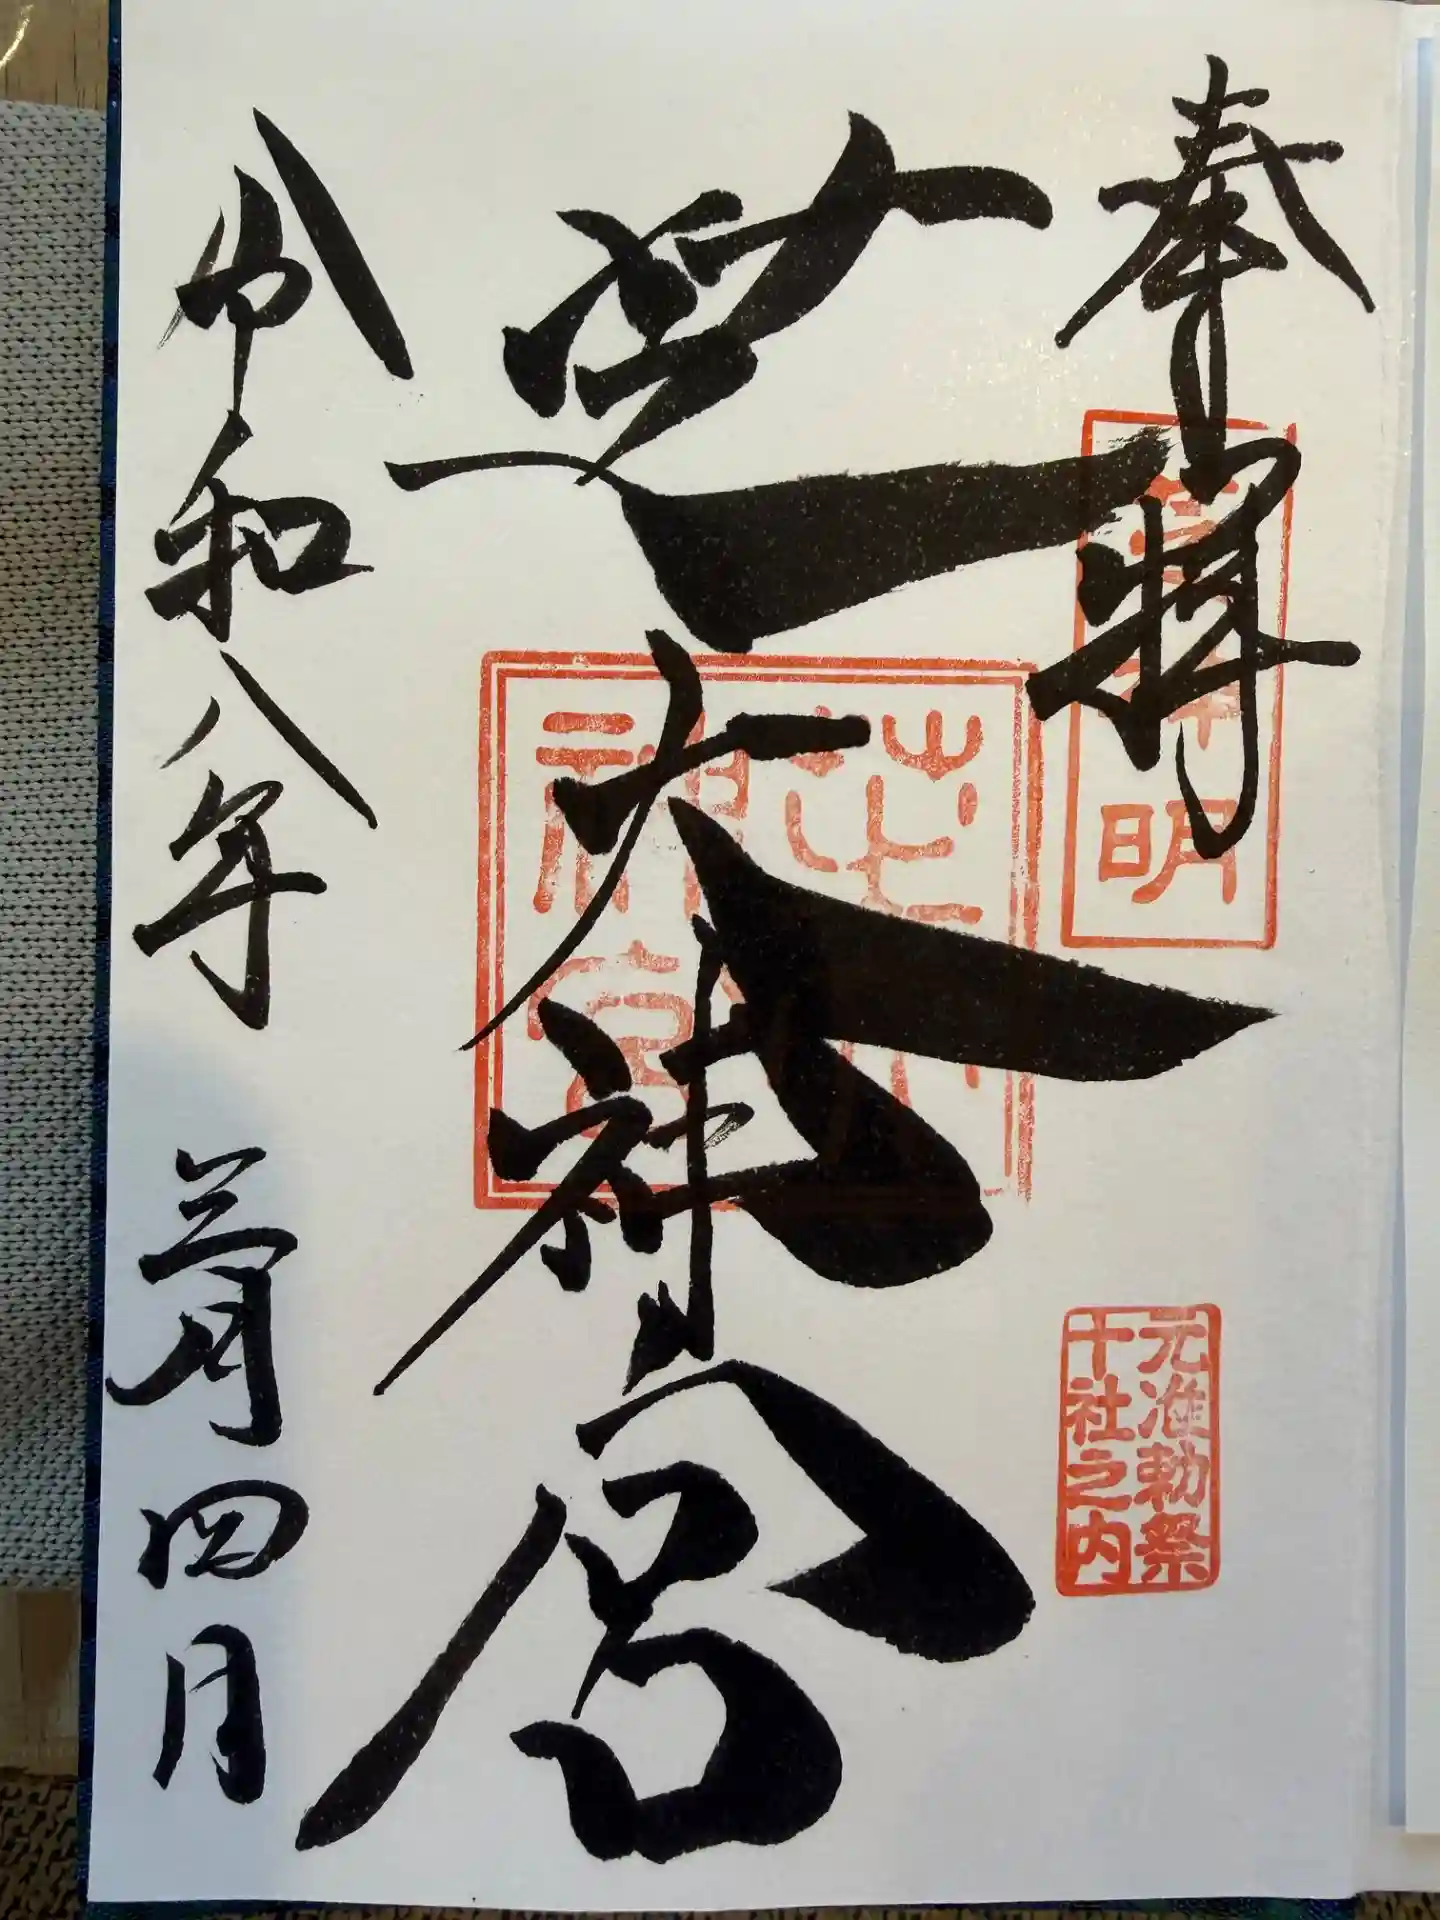 奉拝
明
元准勅祭
十社之内
芝大神宮
芝大
神宮
令和八年三月四日